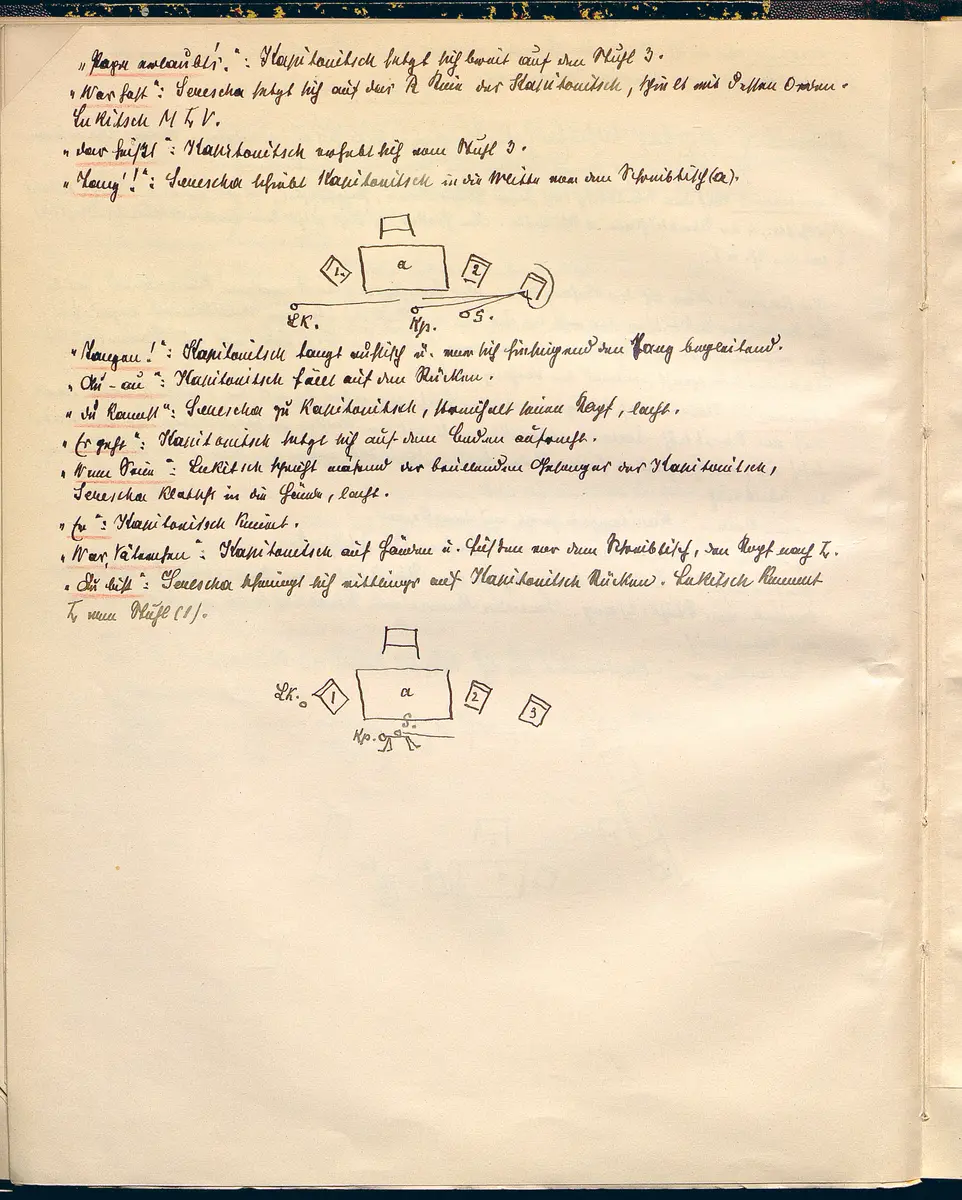 „Papa erlaubt's!“: Kapitonitsch setzt sich breit auf den Stuhl 3.
„Was hast“: Serescha setzt sich auf das R Knie des Kapitonitsch, spielt mit dessen Orden.
Lukitsch M L V.
„das heißt“: Kapitonitsch erhebt sich vom Stuhl 3.
„Tanz'!“: Serescha schiebt Kapitonitsch in die Mitte vor dem Schreibtisch (a).
1.
a
2
LK.
Kp.
S.
„Tanzen!“: Kapitonitsch tanzt u. vor sich hinsingend den Tanz begleitend.
„Au-au“: Kapitonitsch fällt auf den Rücken.
„du kannst“: Serescha zu Kapitonitsch, streichelt seinen Kopf, lacht.
„Er geht“: Kapitonitsch setzt sich auf dem Boden aufrecht.
Lukitsch während des brüllenden Gesanges des Kapitonitsch,
Serescha klatscht in die Hände, lacht.
„Er“: Kapitonitsch kniet.
Kapitonitsch auf Händen u. Füßen vor dem Schreibtisch, den Kopf nach L.
„Du bist“: Serescha schwingt sich rittlings auf Kapitonitsch Rücken. Lukitsch kommt
L vom Stuhl (1).
LK.
1
a
2
3
S.
Kp.